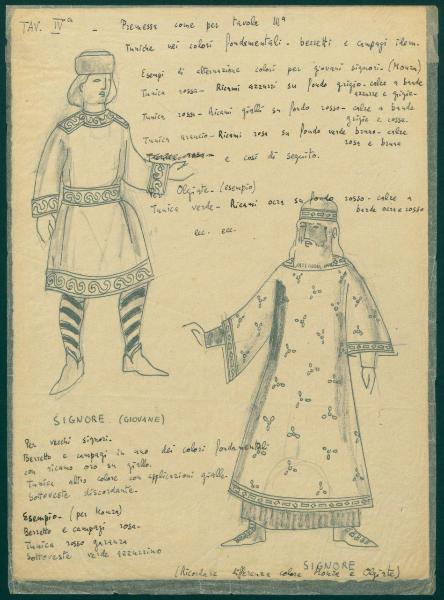 TAV. IVª - Premessa come per tavola IIIª
Tuniche nei colori fondamentali - berretti e campagi idem.
Esempi di alternazione colori per giovani signori - (Monza)
Tunica rossa - Ricami azzurri su fondo grigio - calze a bande
azzurre e grigie -
Tunica rossa - Ricami gialli su fondo rosso - calze a bande
grigie e rossa -
Tunica arancio - Ricami rosa su fondo verde bruno - calze
rosa e bruna
e così di seguito.
Per Olginte - (esempio)
Tunica verde - Ricami ocra su fondo rosso - calze a
bande ocra e rosso
ecc. ecc.
SIGNORE (GIOVANE)
Per vecchi signori -
Berretto e campagi in uno dei colori fondamentali
con ricamo oro su giallo.
Tunica altro colore con applicazioni gialle -
Sottoveste discordante.
Esempio - (per Monza)
Berretto e campagi rosa -
Tunica rosso garanza
Sottoveste verde azzurrino
SIGNORE
(Ricordare differenza colore Monza e Olginte)